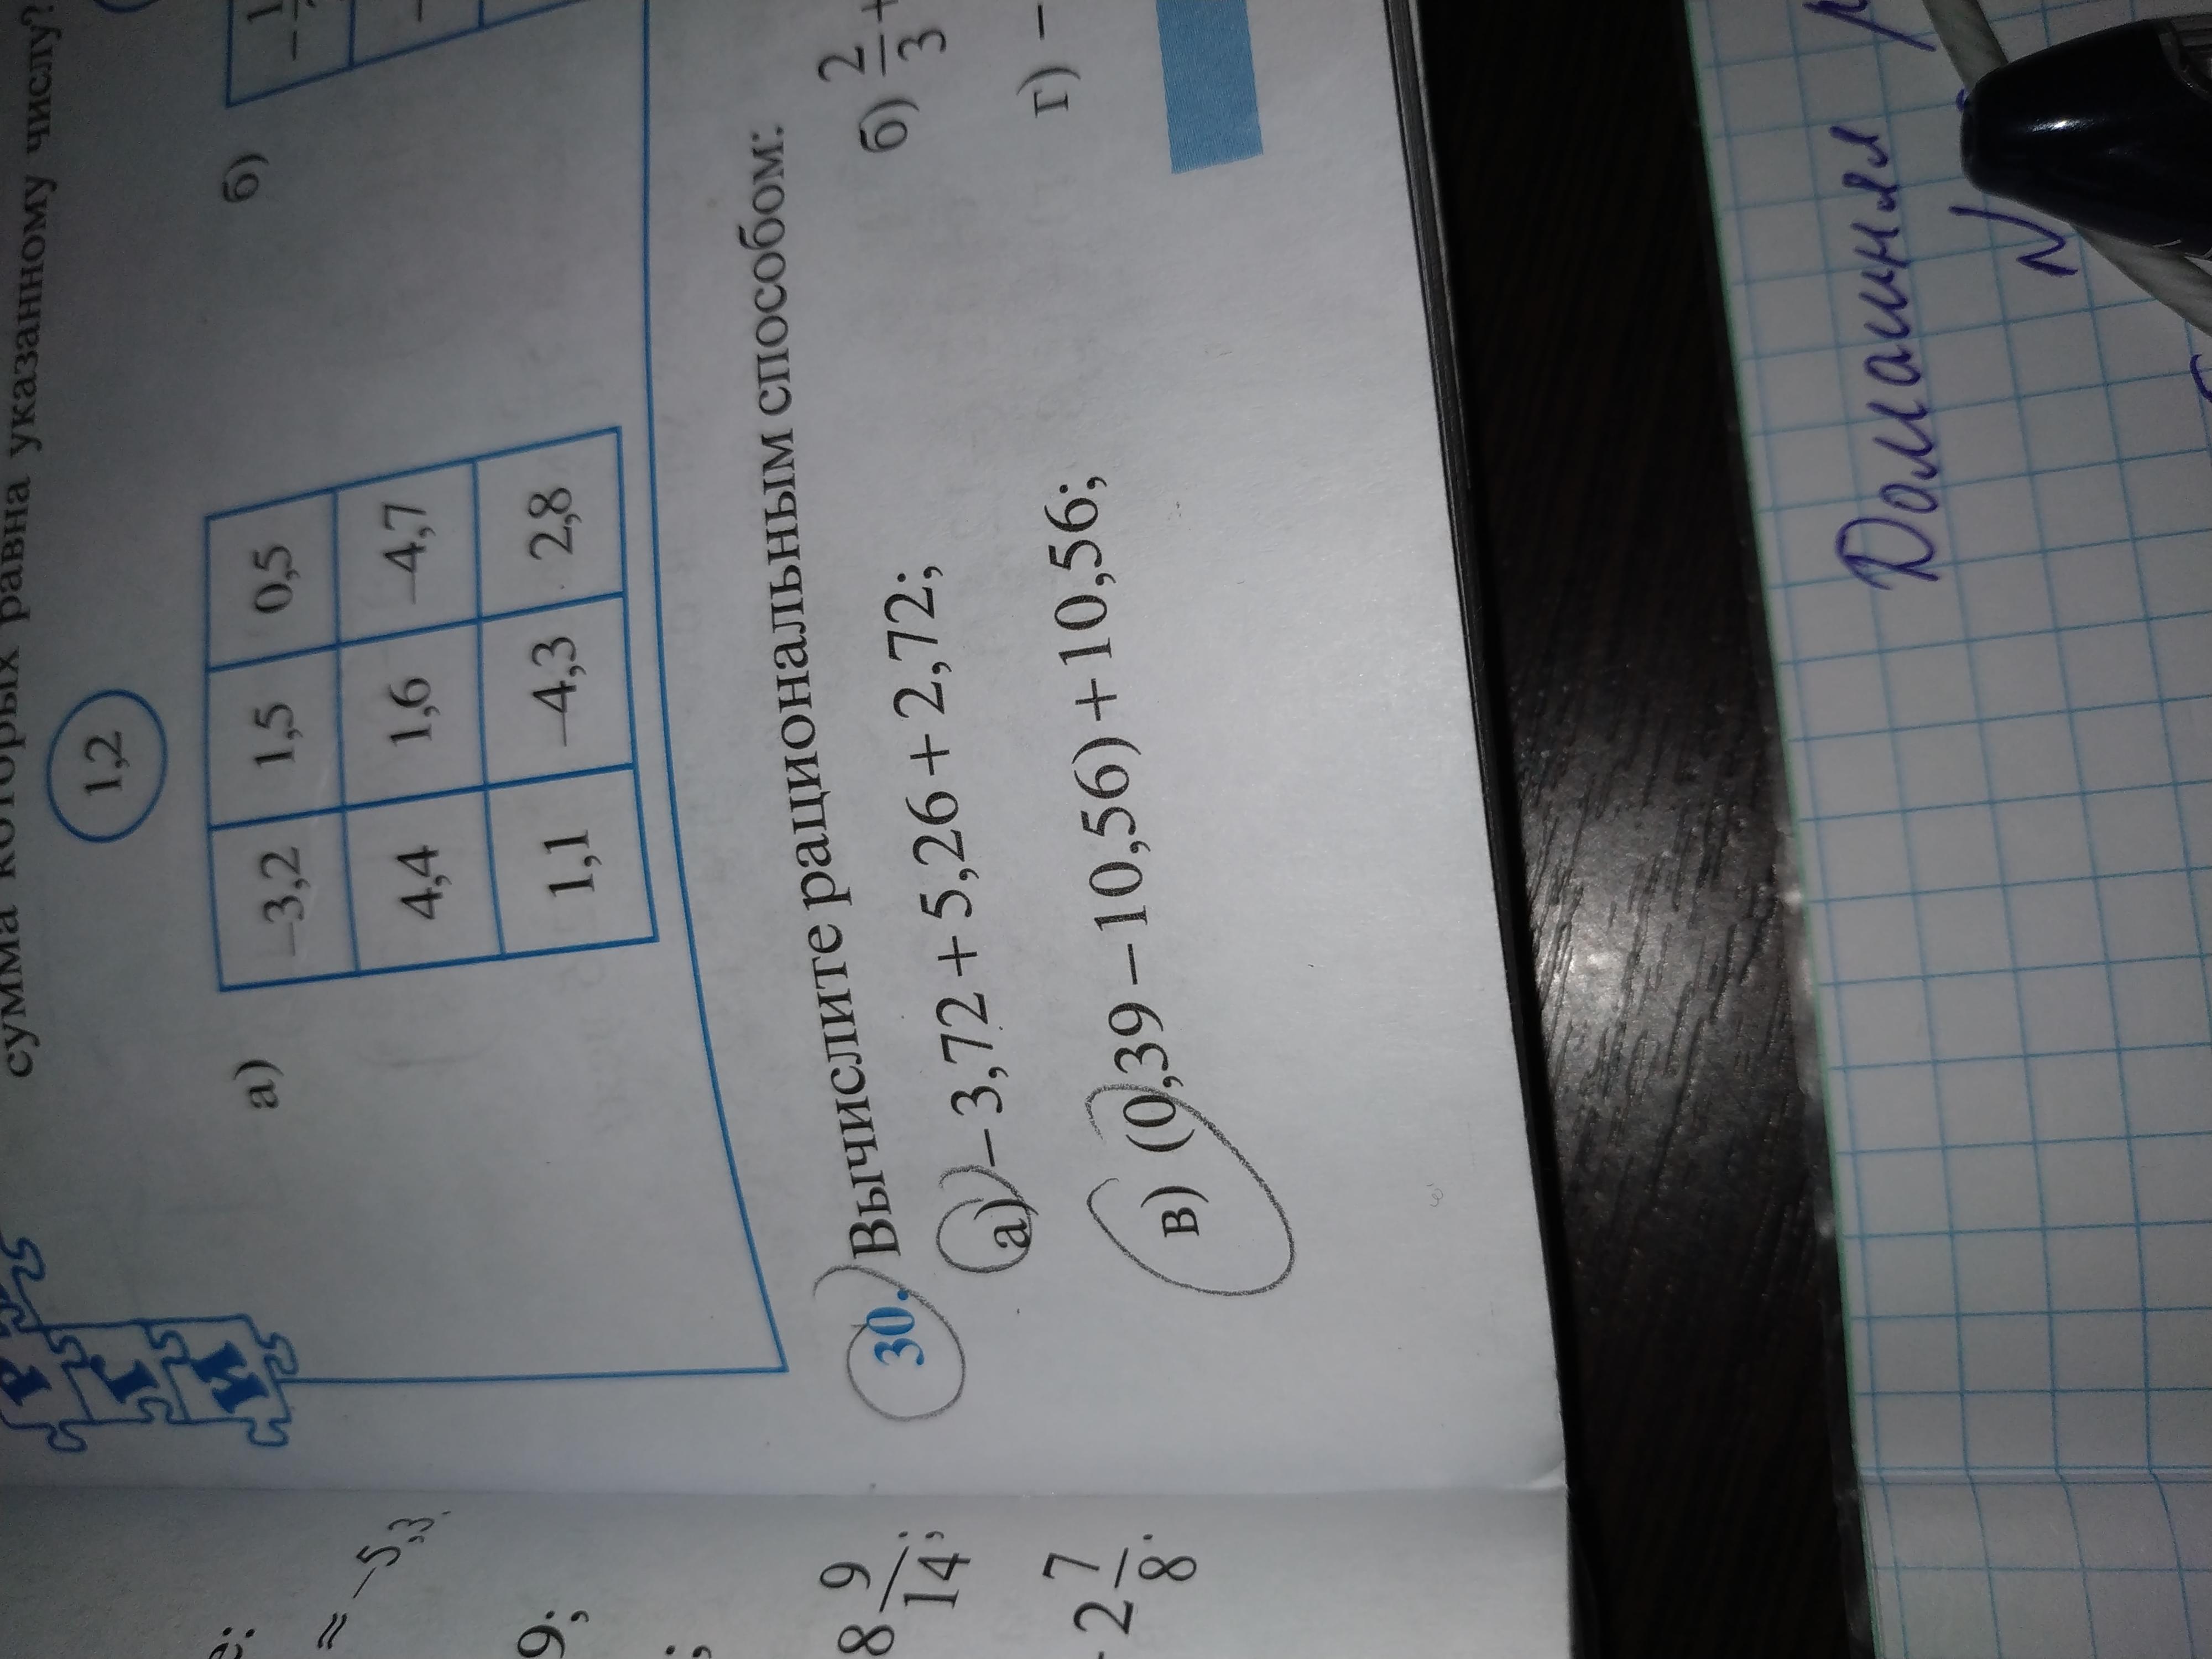 сумма которых равна указанному числу?
1,2
а)
б)
-3,2 1,5 0,5
4,4 1,6 -4,7
1,1 -4,3 2,8
Р
Г
И
30. Вычислите рациональным способом:
а) – 3,72 + 5,26 + 2,72;
б) 2/3 +
в) (0,39 – 10,56) + 10,56;
г) –
= -5,3.
9;
8 9/14;
2 7/8.
Домашняя
N